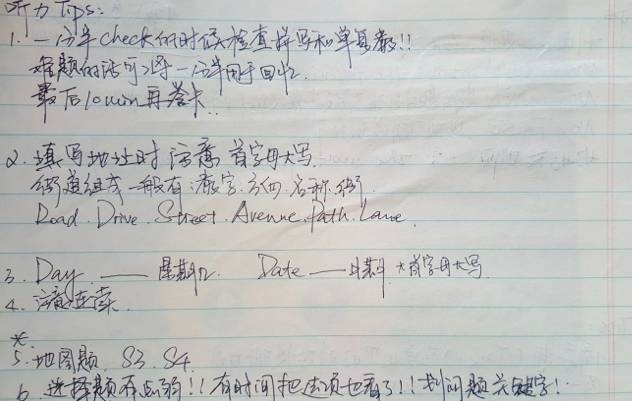 听力 Tips:
1. 一分半 check 的时候检查拼写和单复数!!
难题的话可以将一分半用于回忆.
最后 10min 再答卡.
2. 填写地址时注意 首字母大写.
街道组成一般有: 数字. 方向. 名称. 街.
Road. Drive. Street. Avenue. Path. Lane.
3. Day —— 星期几. Date —— 日期 *首字母大写.
4. 注意连读.
*
5. 地图题. S3. S4.
6. 选择题有点弱!! 有时间把选项也看了!! 划问题关键字!